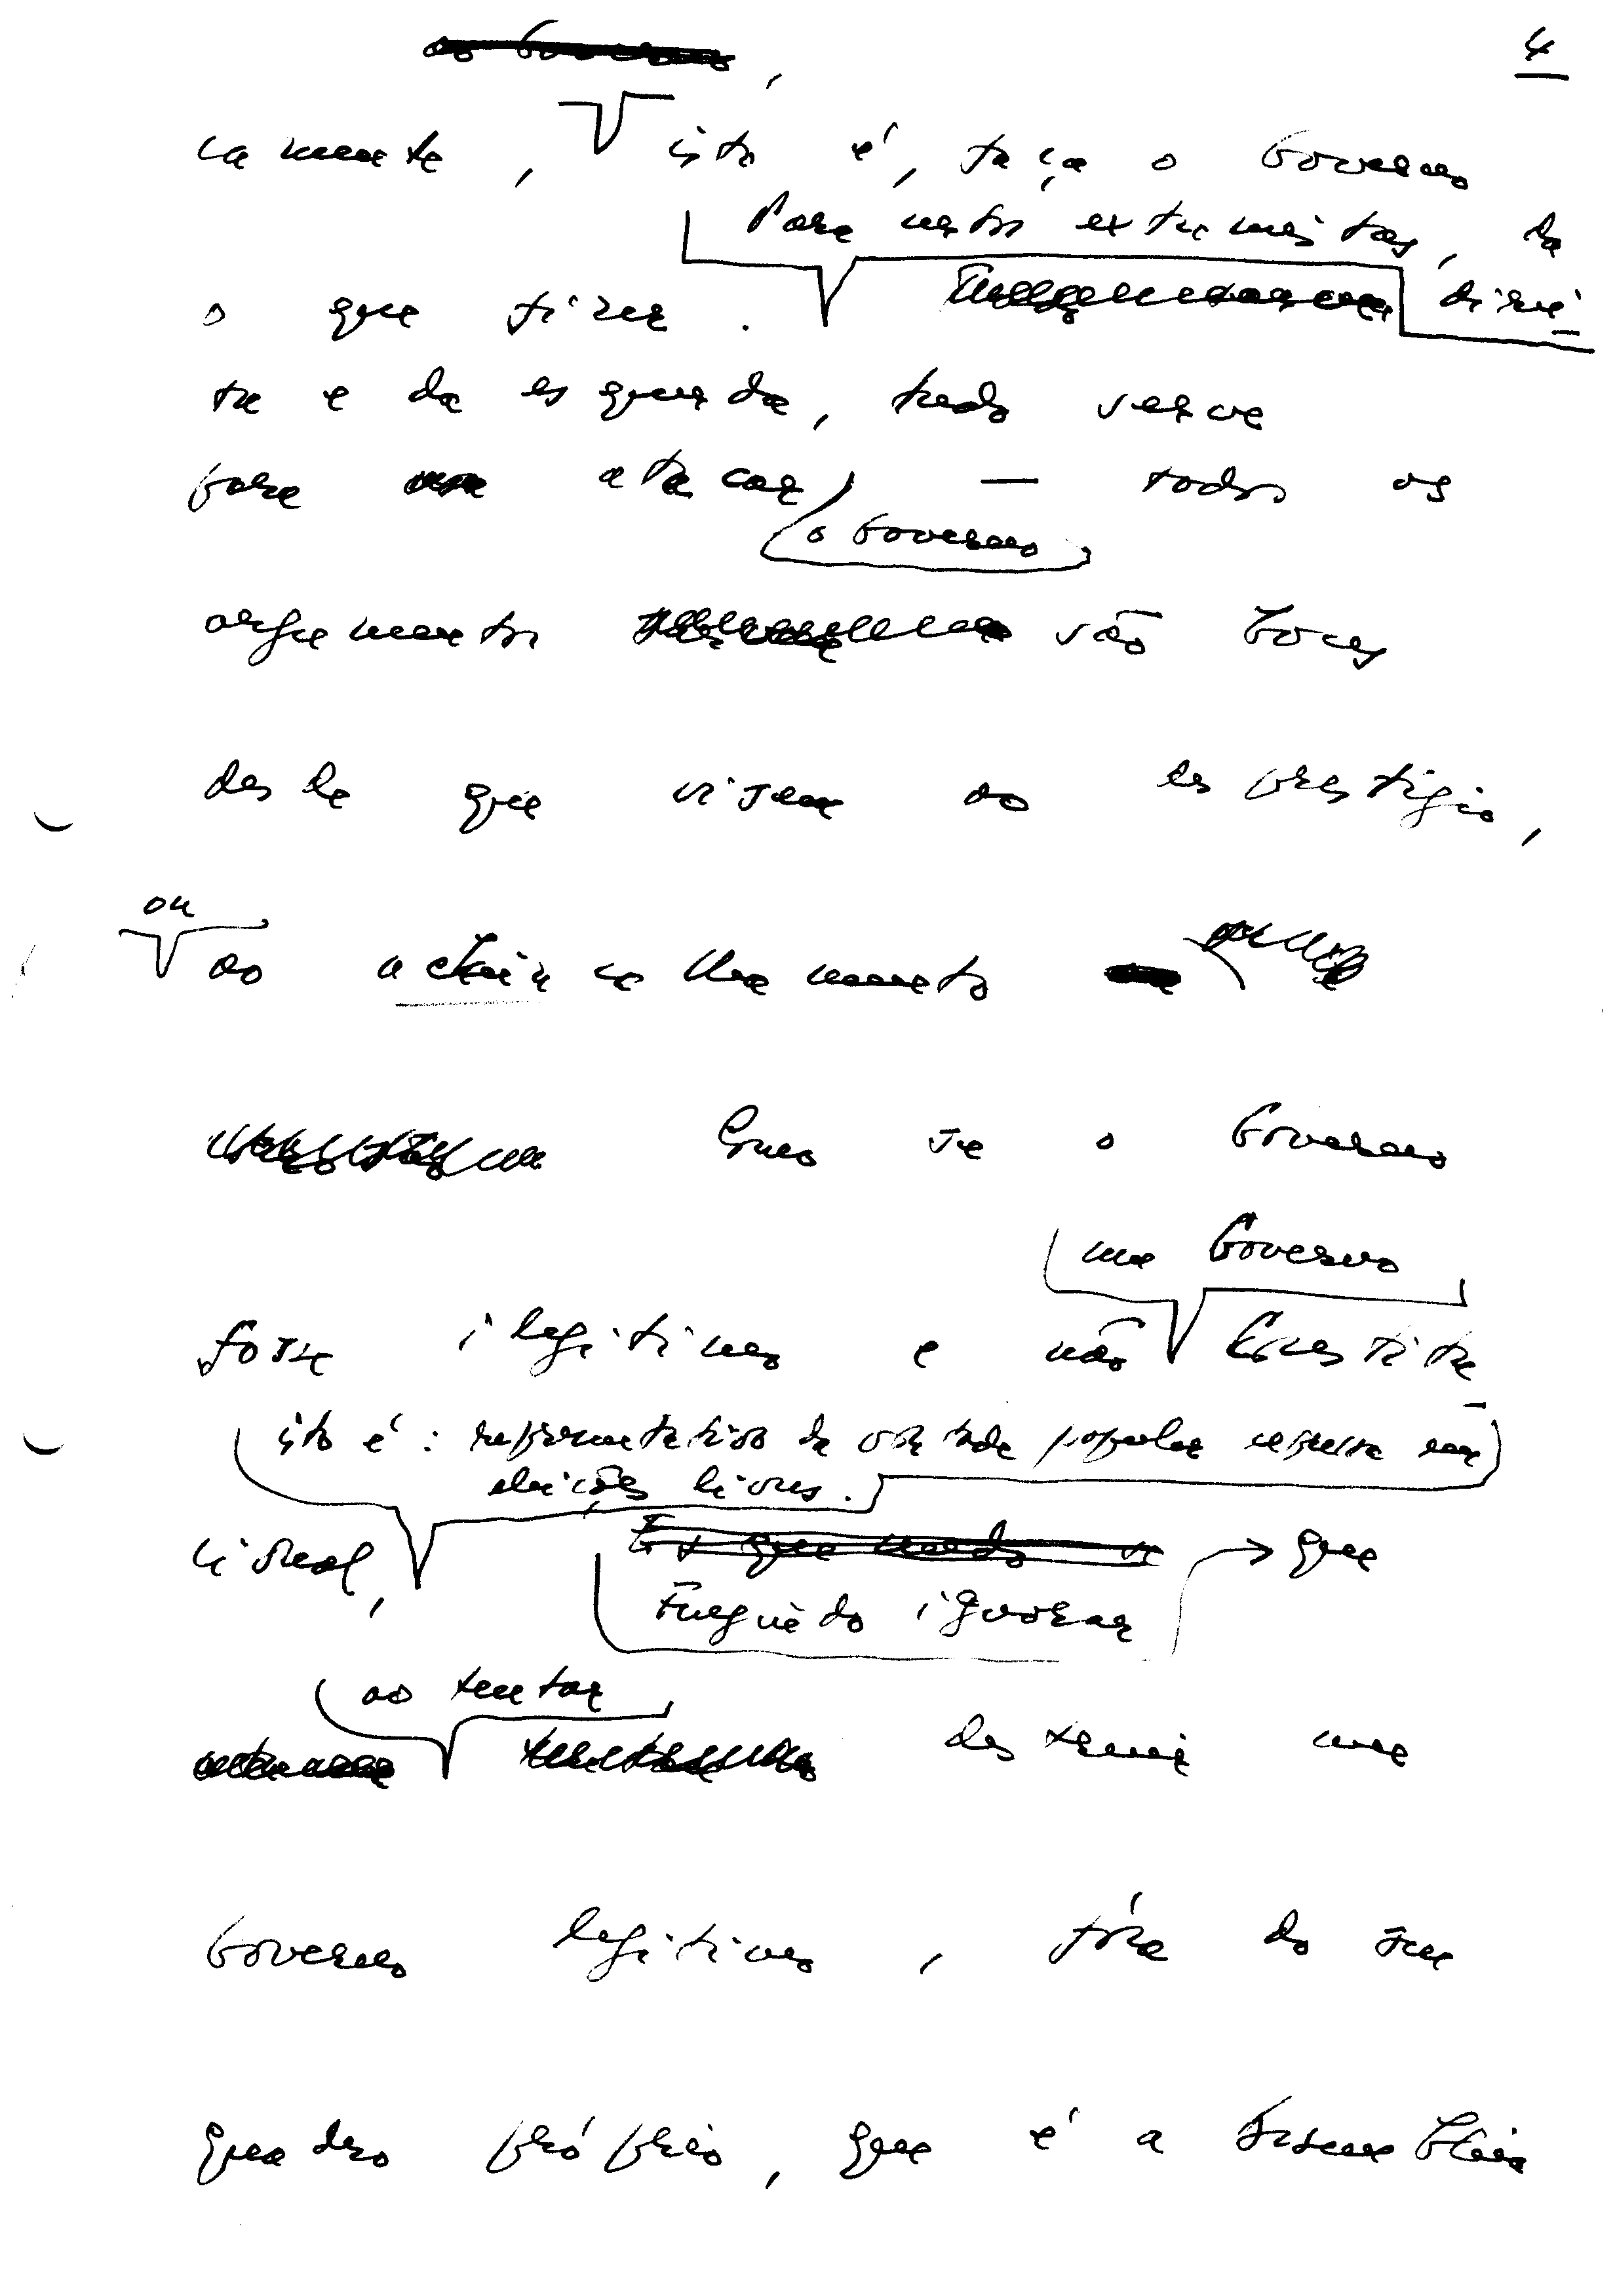 4
camente, isto é, faça o Governo
Para estes extremistas, da
o que fizer. direi-
ta e da esquerda, tudo serve
para atacar — todos os
o Governo
argumentos são bons
desde que visem ao desprestígio,
ou
ao achincalhamento
Como se o Governo
um Governo
fosse ilegítimo e não Constitu-
isto é: representativo da vontade popular expressa em
eleições livres.
cional, que
Fingindo ignorar
ao tentar
destruir um
Governo legítimo, fóra do seu
quadro próprio, que é a Assembleia